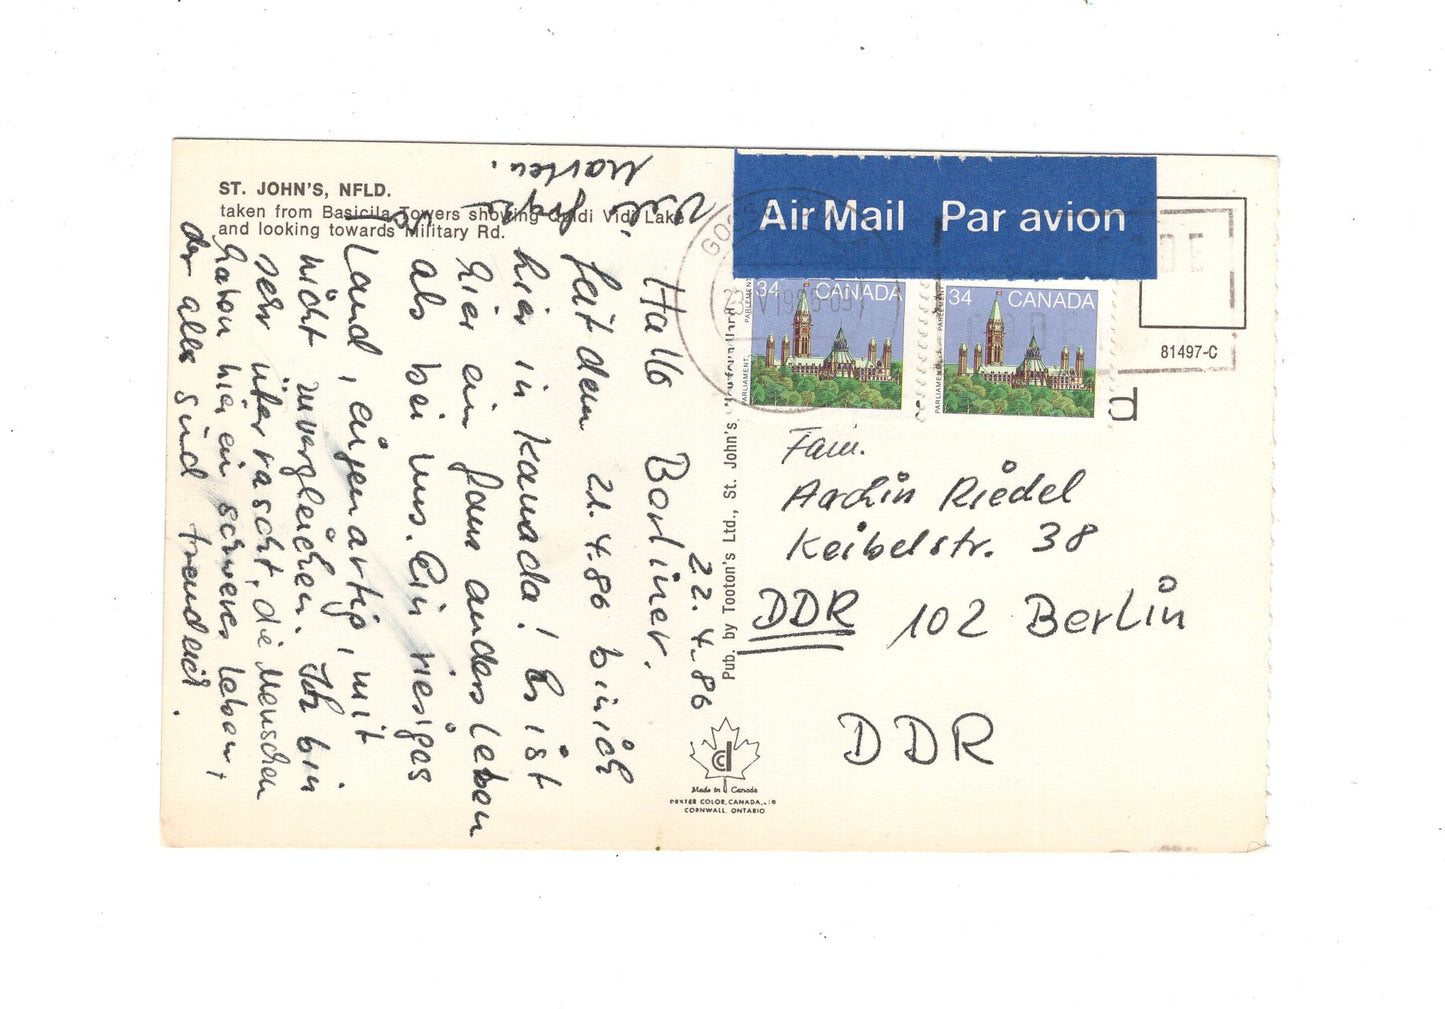 ST. JOHN'S, NFLD.
taken from Basicila Towers showing Quidi Vidi Lake
and looking towards Military Rd.
22.4.86
Hallo Berliner.
Seit dem 21.4.86 bin ich
hier in Kanada! Es ist
hier ein ganz anders Leben
als bei uns. Ein riesiges
Land, eigenartig, mit
nichts zu vergleichen. Ich bin
sehr überrascht, die Menschen
haben hier ein schweres Leben,
aber alle sind freundlich.
Viele Grüße
Pub. by Tooton's Ltd., St. John's, Newfoundland
Made in Canada
DEXTER COLOR, CANADA, LTD
CORNWALL, ONTARIO
Air Mail Par avion
34 CANADA
PARLIAMENT, PARLEMENT
34 CANADA
PARLIAMENT, PARLEMENT
81497-C
Fam.
Archin Riedel
Keibelstr. 38
DDR 102 Berlin
DDR